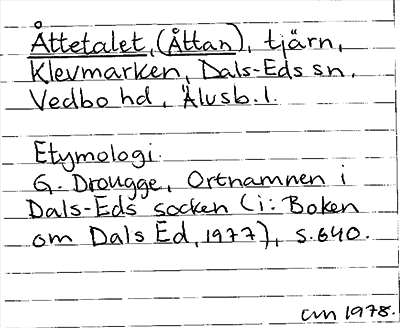 Åttetalet, (Åttan), tjärn,
Klevmarken, Dals-Eds sn.
Vedbo hd, Älvsb. l.
Etymologi.
G. Drougge, Ortnamnen i
Dals-Eds socken (i: Boken
om Dals Ed, 1977), s. 640.
cm 1978.